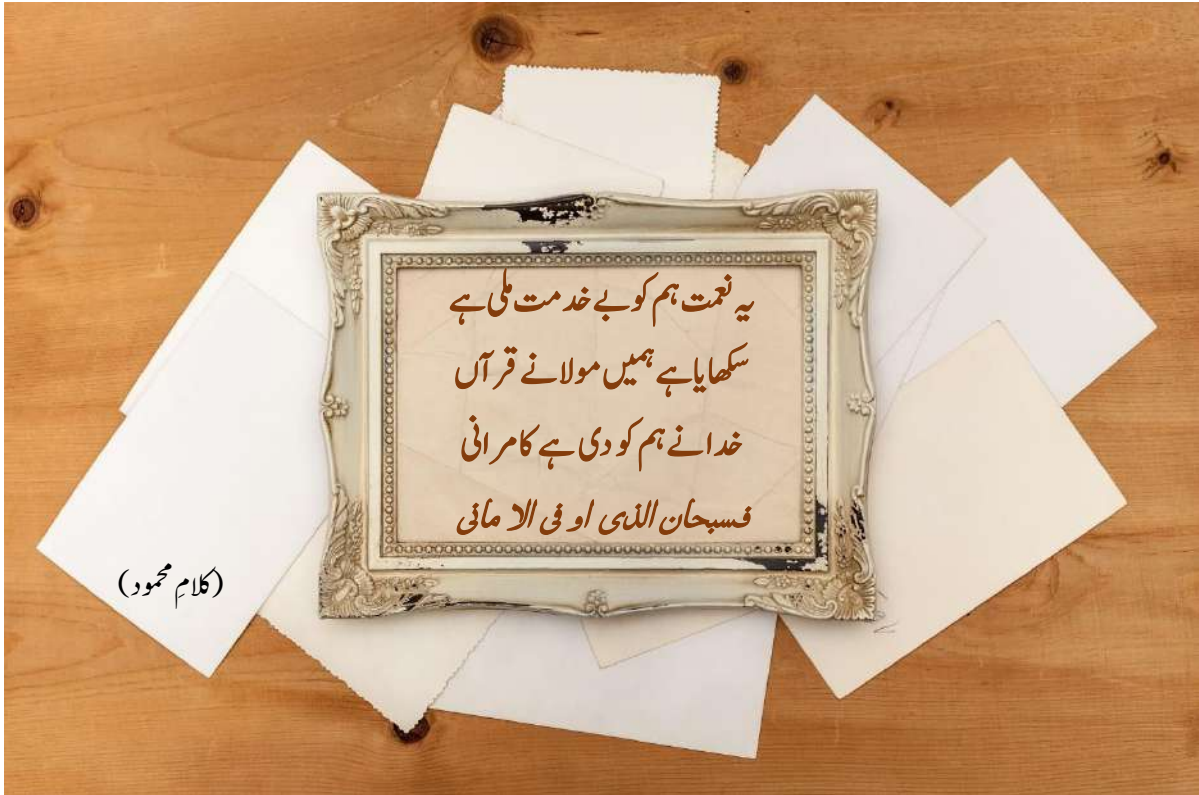 یہ نعمت ہم کو بے خدمت ملی ہے
سکھایا ہے ہمیں مولا نے قرآں
خدا نے ہم کو دی ہے کامرانی
فسبحان الذی او فی الا مانی
(کلامِ محمود)